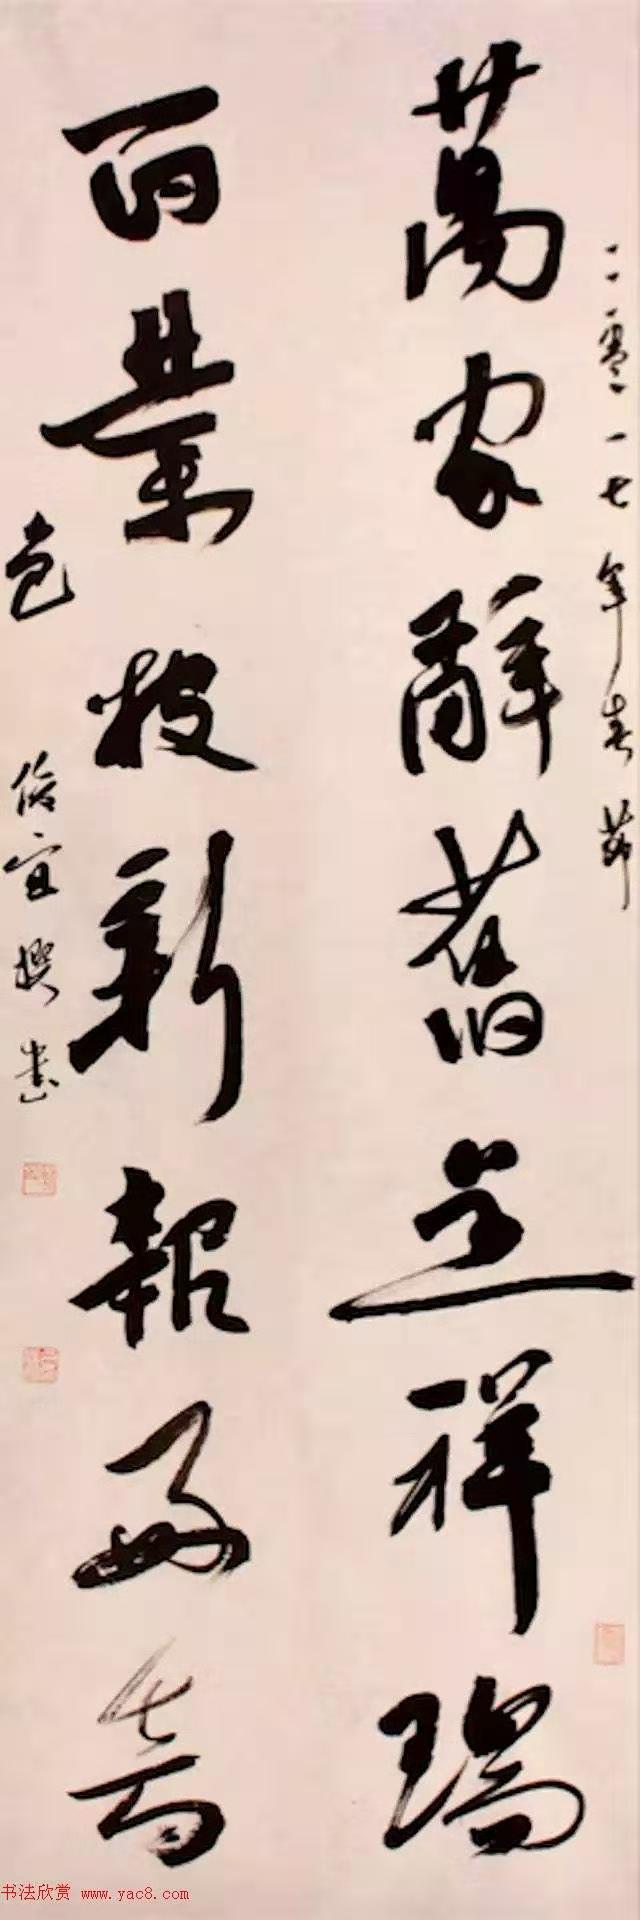 二零一七年春節
萬家辭舊祥瑞
百業披新報好音
俊宜撰書
书法欣赏 www.yac8.com